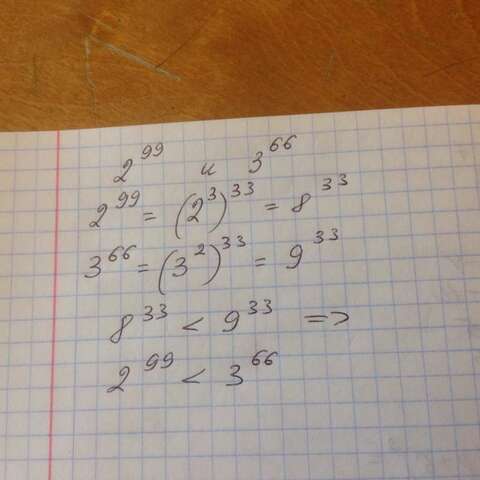 2^99 и 3^66
2^99 = (2^3)^33 = 8^33
3^66 = (3^2)^33 = 9^33
8^33 < 9^33 =>
2^99 < 3^66